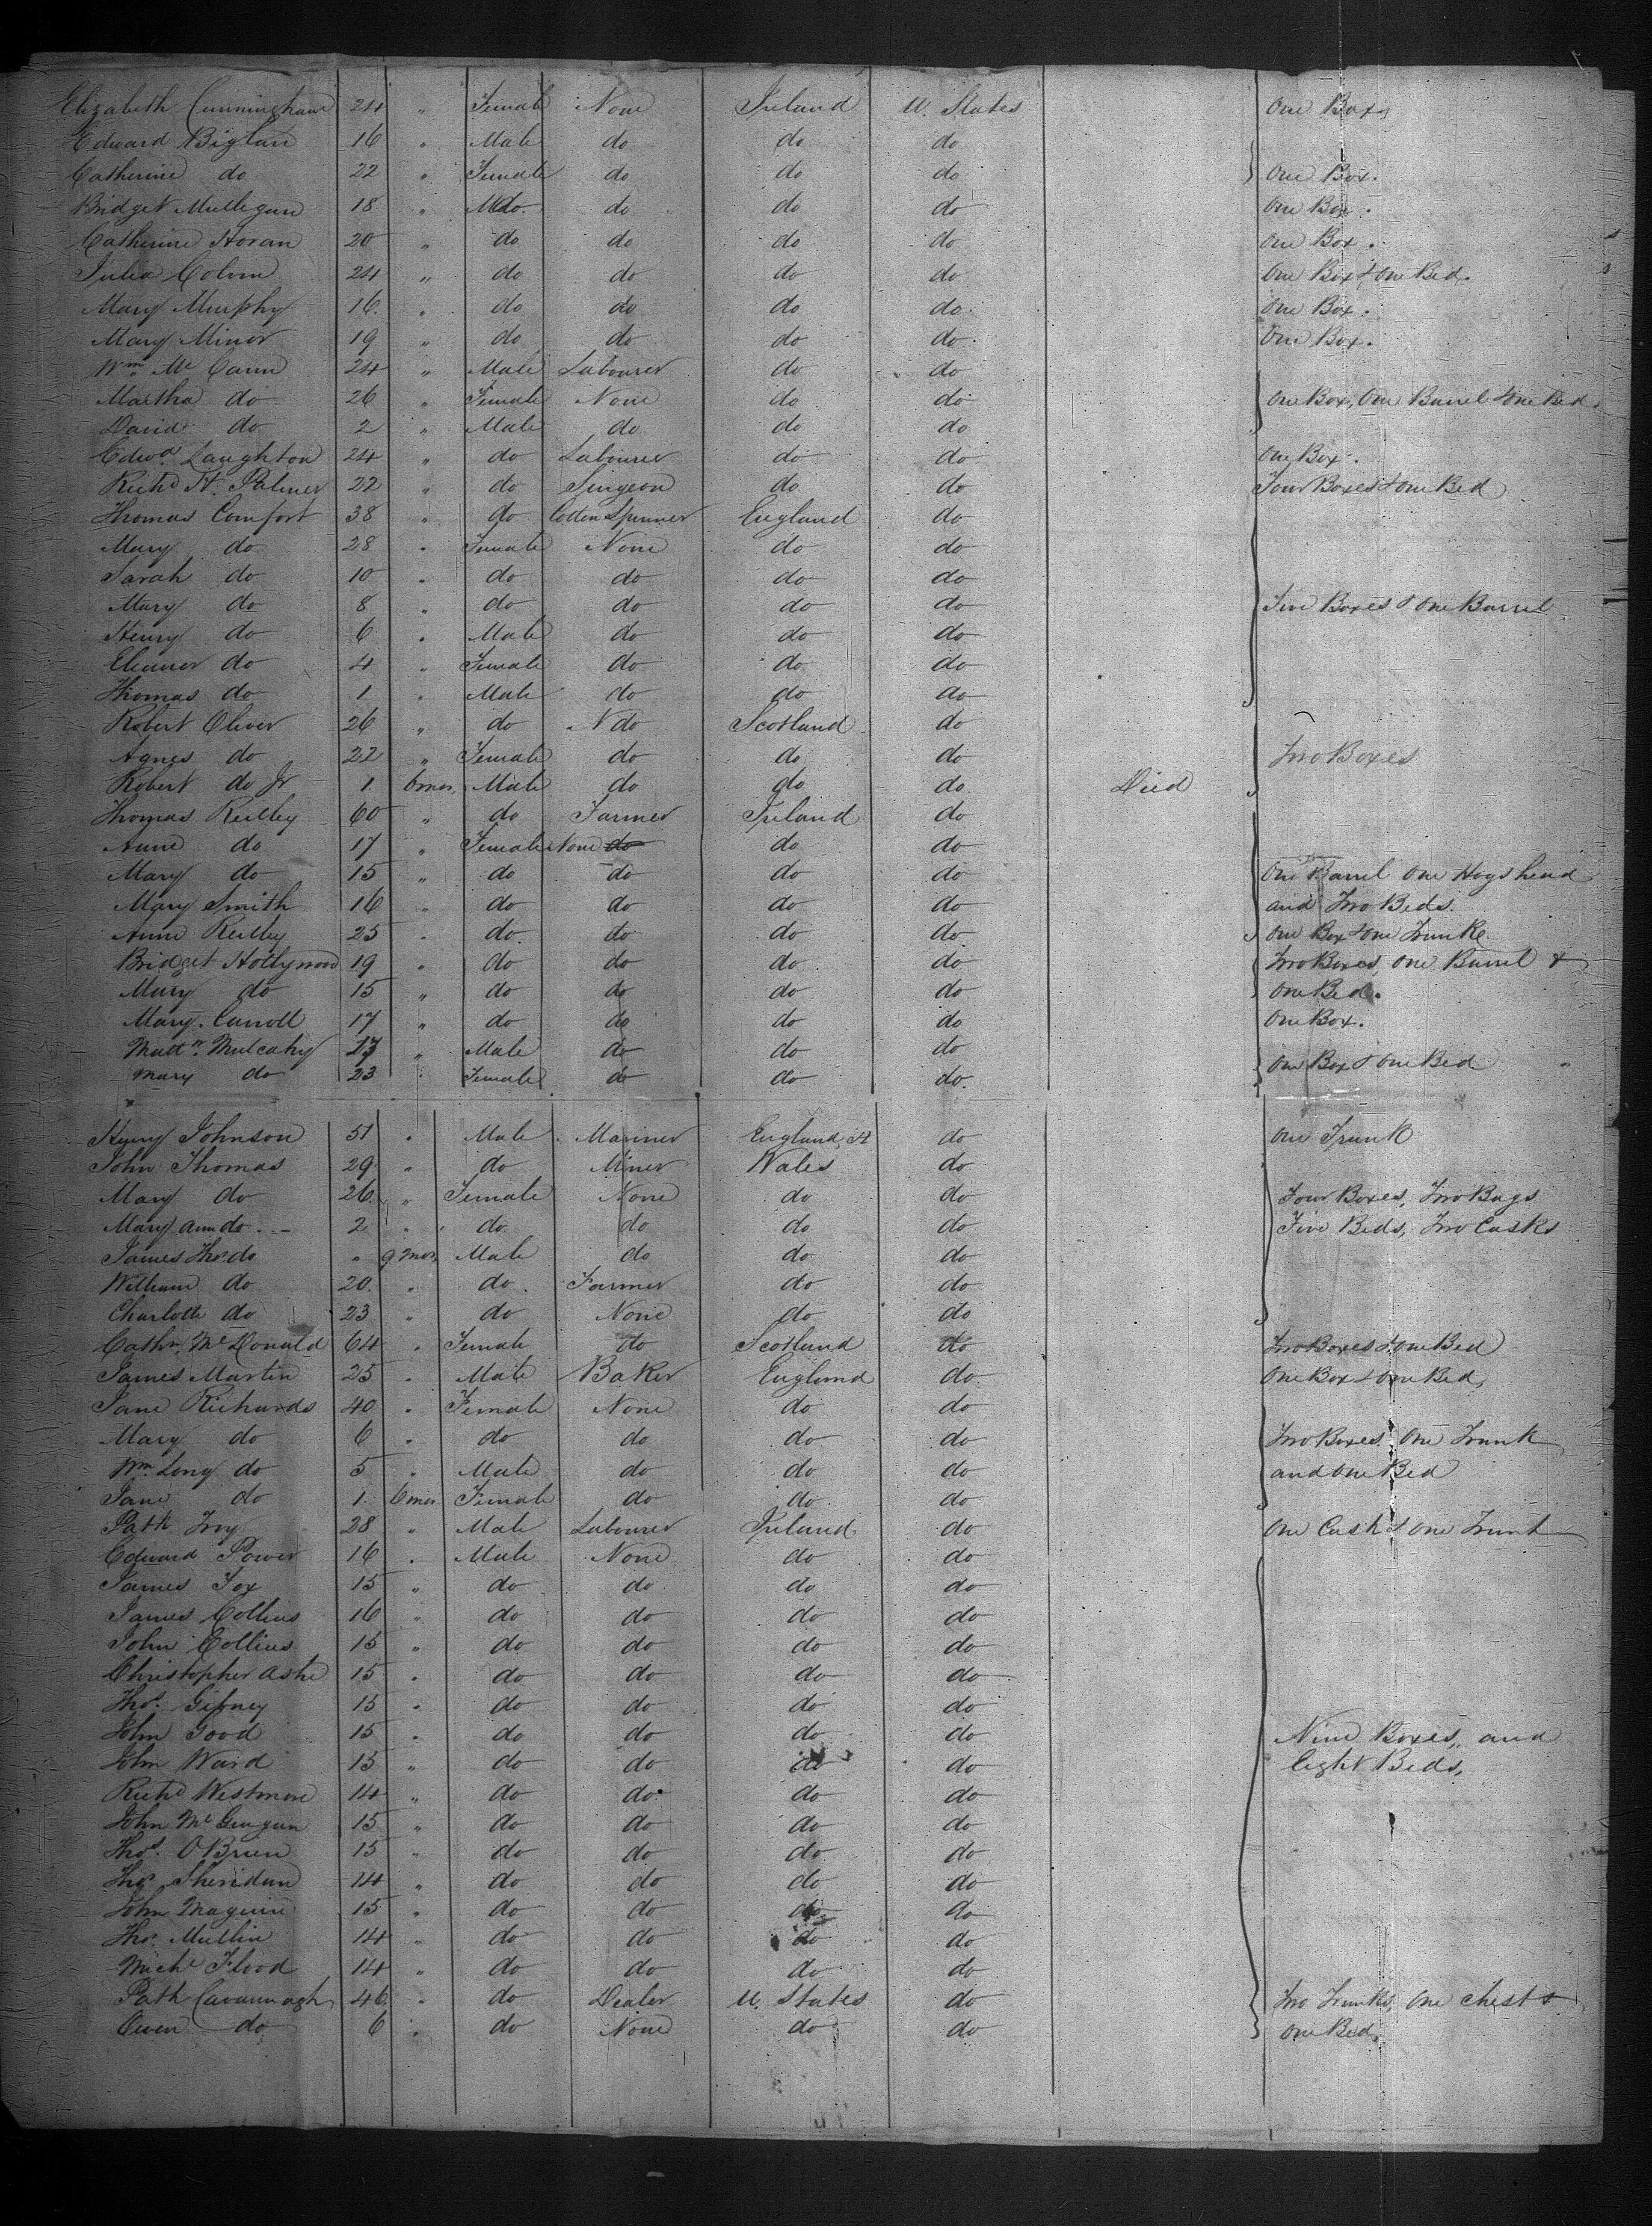 Elizabeth Cunningham 24 " Female None Ireland U. States One Box,
Edward Biglan 16 " Male do do do
Catherine do 22 " Female do do do One Box.
Bridget Mulligan 18 " do. do do do One Box.
Catherine Horan 20 " do do do do One Box.
Julia Colvin 24 " do do do do One Box & One Bed.
Mary Murphy 16. " do do do do. One Box.
Mary Minor 19 " do do do do. One Box.
Wm Mc Cann 24 " Male Labourer do do
Martha do 26 " Female None do do One Box, One Barrel & One Bed.
David do 2 " Male do do do
Edwd Laughton 24 " do Labourer do do One Box.
Richd H. Palmer 22 " do Surgeon do do Four Boxes & One Bed
Thomas Comfort 38 " do Cotton Spinner England do
Mary do 28 " Female None do do
Sarah do 10 " do do do do
Mary do 8 " do do do do Five Boxes & One Barrel
Henry do 6 " Male do do do
Eleanor do 4 " Female do do do
Thomas do 1 " Male do do do
Robert Oliver 26 " do do Scotland do
Agnes do 22 " Female do do do Two Boxes
Robert do Jr 1 6 mos. Male do do do. Died
Thomas Reilley 60 " do Farmer Ireland do
Anne do 17 " Female None do do do
Mary do 15 " do do do do One Barrel One Hogshead
Mary Smith 16 " do do do do and Two Beds.
Anne Reilley 25 " do. do do do One Box & One Trunk
Bridget Hollywood 19 " do do do. do Two Boxes, One Barrel &
Mary do 15 " do do do do One Bed.
Mary Carroll 17 " do do do do One Box.
Mattw. Mulcahy 27 " Male do do do
Mary do 23 " Female do do do. One Box & One Bed
Henry Johnson 51 " Male Mariner England do One Trunk
John Thomas 29 " do Miner Wales do
Mary do 26 " Female None do do Four Boxes, Two Bags
Mary Ann do 2 " do. do do do Five Beds, Two Casks
James Thos. do " 9 mos. Male do do do
William do 20. " do. Farmer do do
Charlotte do 23 " do None do do
Cathn. Mc Donald 64 " Female do Scotland do Two Boxes & One Bed
James Martin 25 " Male Baker England do One Box & One Bed,
Jane Richards 40 " Female None do do
Mary do 6 " do do do do Two Boxes One Trunk
Wm. Long do 5 " Male do do do and One Bed
Jane do 1. 6 mos. Female do do do
Patk Ivy 28 " Male Labourer Ireland do One Cask & One Trunk
Edward Power 16 " Male None do do
James Fox 15 " do do do do
James Collins 16 " do do do do
John Collins 15 " do do do do
Christopher Ashe 15 " do do do do
Thos. Gibney 15 " do do do do
John Good 15 " do do do do Nine Boxes, and
John Ward 15 " do do do do Eight Beds,
Richd Westmore 14 " do do do do
John Mc Guigan 15 " do do do do
Thos. O'Brien 15 " do do do do
Thos. Sheridan 14 " do do do do
John Maguire 15 " do do do do
Thos. Mullin 14 " do do do do
Michl Flood 14 " do do do do
Patk Cavannagh 46 " do Dealer U. States do Two Trunks, One Chest &
Owen do 6 " do None do do One Bed.